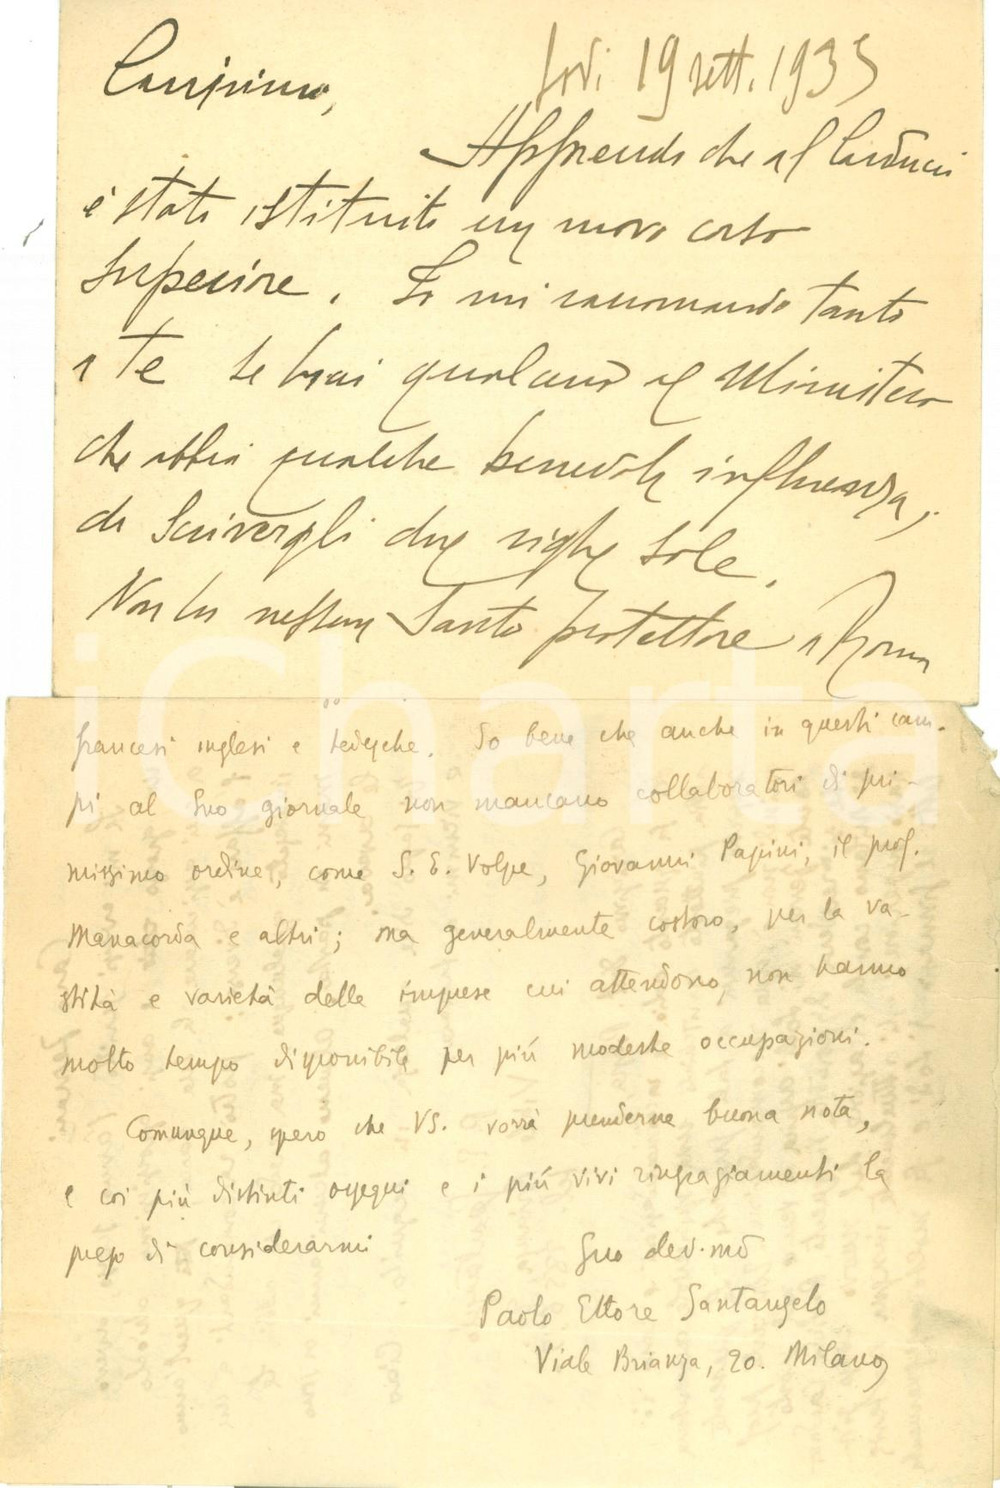 Carissimo,
Lodi 19 sett. 1935
Apprendo che al Carducci
è stato istituito un nuovo corso
Superiore. Io mi raccomando tanto
a te se hai qualcuno al Ministero
che abbia qualche benevola influenza,
di scrivergli due righe sole.
Non ho nessun Santo protettore a Roma
iCharta
francesi inglesi e tedesche. So bene che anche in questi cam-
pi al Suo giornale non mancano collaboratori di pri-
missimo ordine, come S. E. Volpe, Giovanni Papini, il prof.
Manacorda e altri; ma generalmente costoro, per la va-
stità e varietà delle imprese cui attendono, non hanno
molto tempo disponibile per più modeste occupazioni.
Comunque, spero che VS. vorrà prenderne buona nota,
e coi più distinti ossequi e i più vivi ringraziamenti la
prego di considerarmi
Suo dev.mo
Paolo Ettore Santangelo
Viale Brianza, 20. Milano